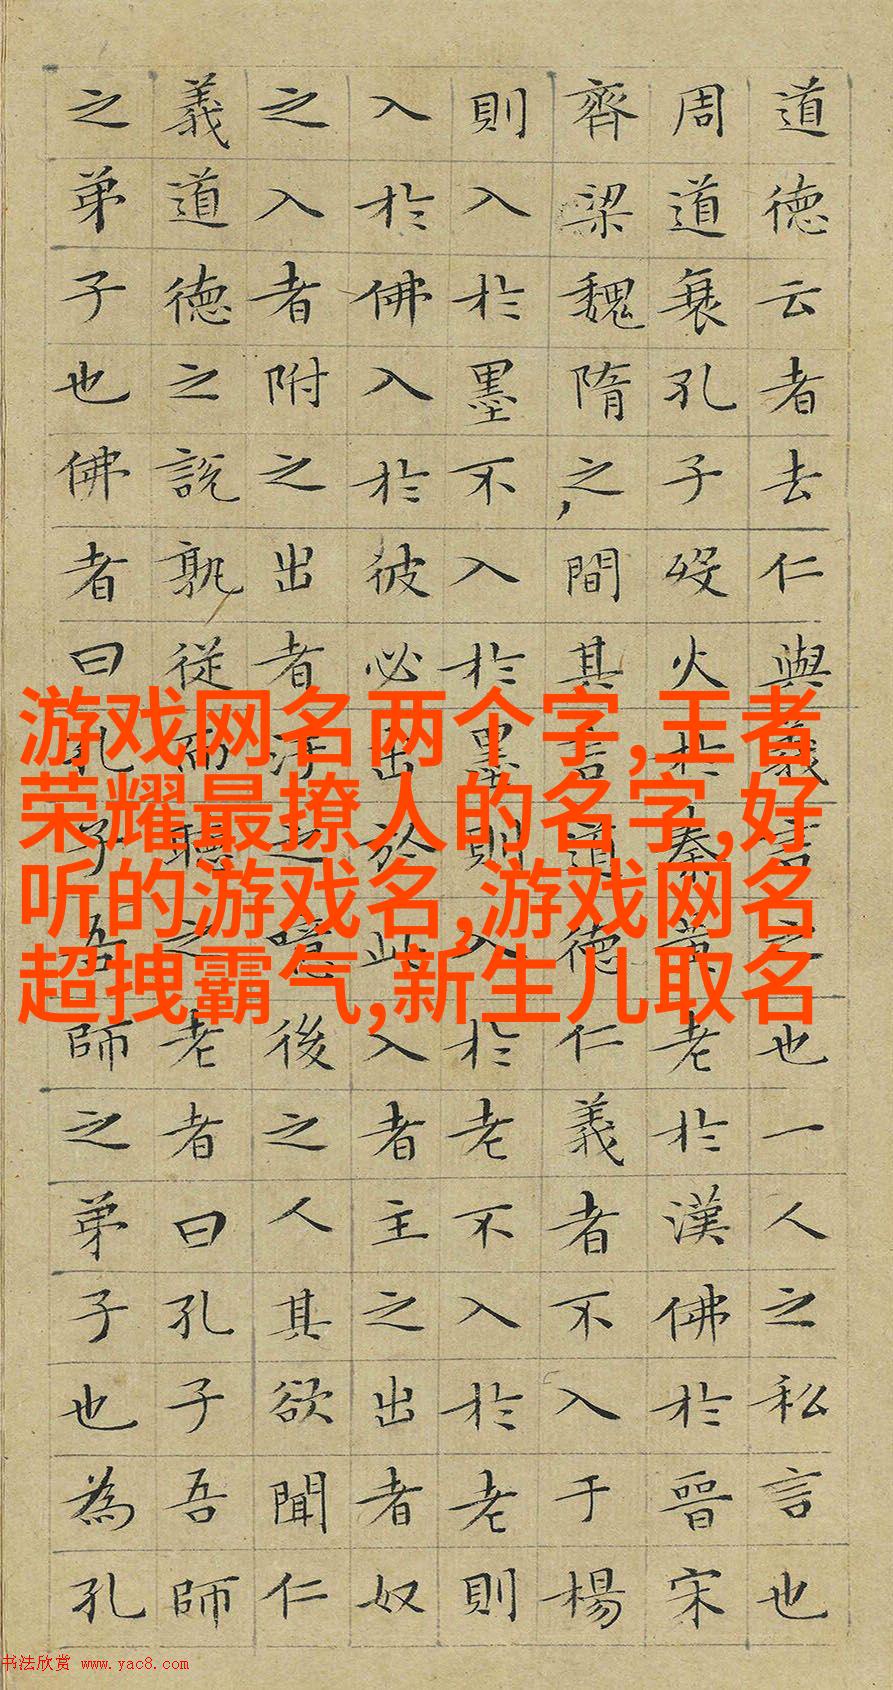 道德云者去仁與義言之也一人之私言也
周道衰孔子歿火於秦黃老於漢佛於晉宋
齊梁魏隋之間其言道德仁義者不入于楊
則入於墨不入於墨則入於老不入於老則
入於佛入於彼必出於此入者主之出者奴
之入者附之出者汙之噫後之人其欲聞仁
義道德之說孰從而聽之老者曰孔子吾師
之弟子也佛者曰孔子吾師之弟子也為孔
游戏网名两个字,王者
荣耀最撩人的名字,好
听的游戏名,游戏网名
超拽霸气,新生儿取名
书法欣赏 www.yac8.com